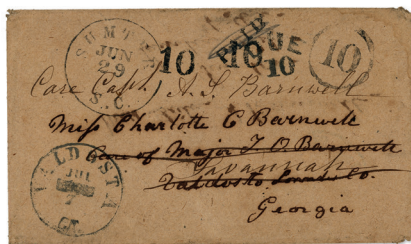 SUMTER
JUN
29
S.C.
10
PAID
10
DUE
10
10
Care Capt. A. S. Barnwell
Miss Charlotte C Barnwell
Care of Major T. O. Barnwell
Savannah
Valdosta Lowndes Co.
Georgia
VALDOSTA
JUL
7
GA.